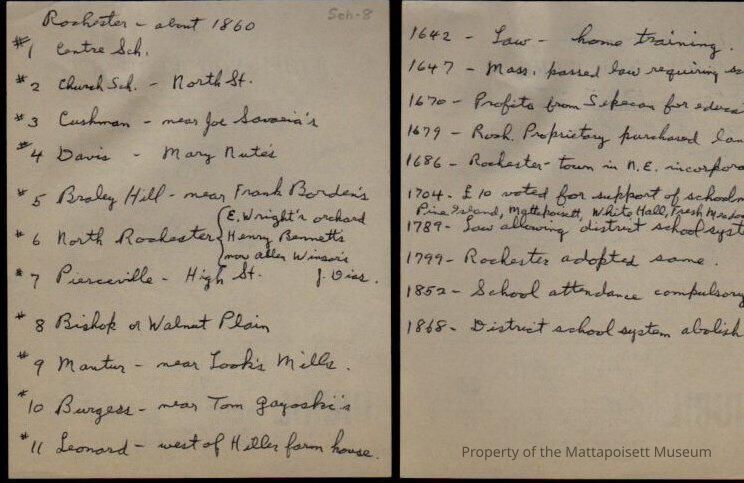 Sch-8
Rochester - about 1860
#1 Centre Sch.
#2 Church Sch. - North St.
#3 Cushman - near Joe Savaria's
#4 Davis - Mary Nute's
#5 Braley Hill - near Frank Borden's
#6 North Rochester { E. Wright's orchard
Henry Bennett's
now Allen Winsor's
#7 Pierceville - High St. J. Dias.
#8 Bishop or Walnut Plain
#9 Mantur - near Look's Mills.
#10 Burgess - near Tom Gayoski's
#11 Leonard - west of Hiller farm house.
1642 - Law - home training.
1647 - Mass. passed law requiring sc
1670 - Profits from Sipecan for educa
1679 - Roch. Proprietary purchased lan
1686 - Rochester - town in N.E. incorpora
1704 - £10 voted for support of schoolm
Pine Island, Mattapoisett, White Hall, Fresh Meadow
1789 - Law allowing district school syst
1799 - Rochester adopted same.
1852 - School attendance compulsory
1868 - District school system abolish
Property of the Mattapoisett Museum